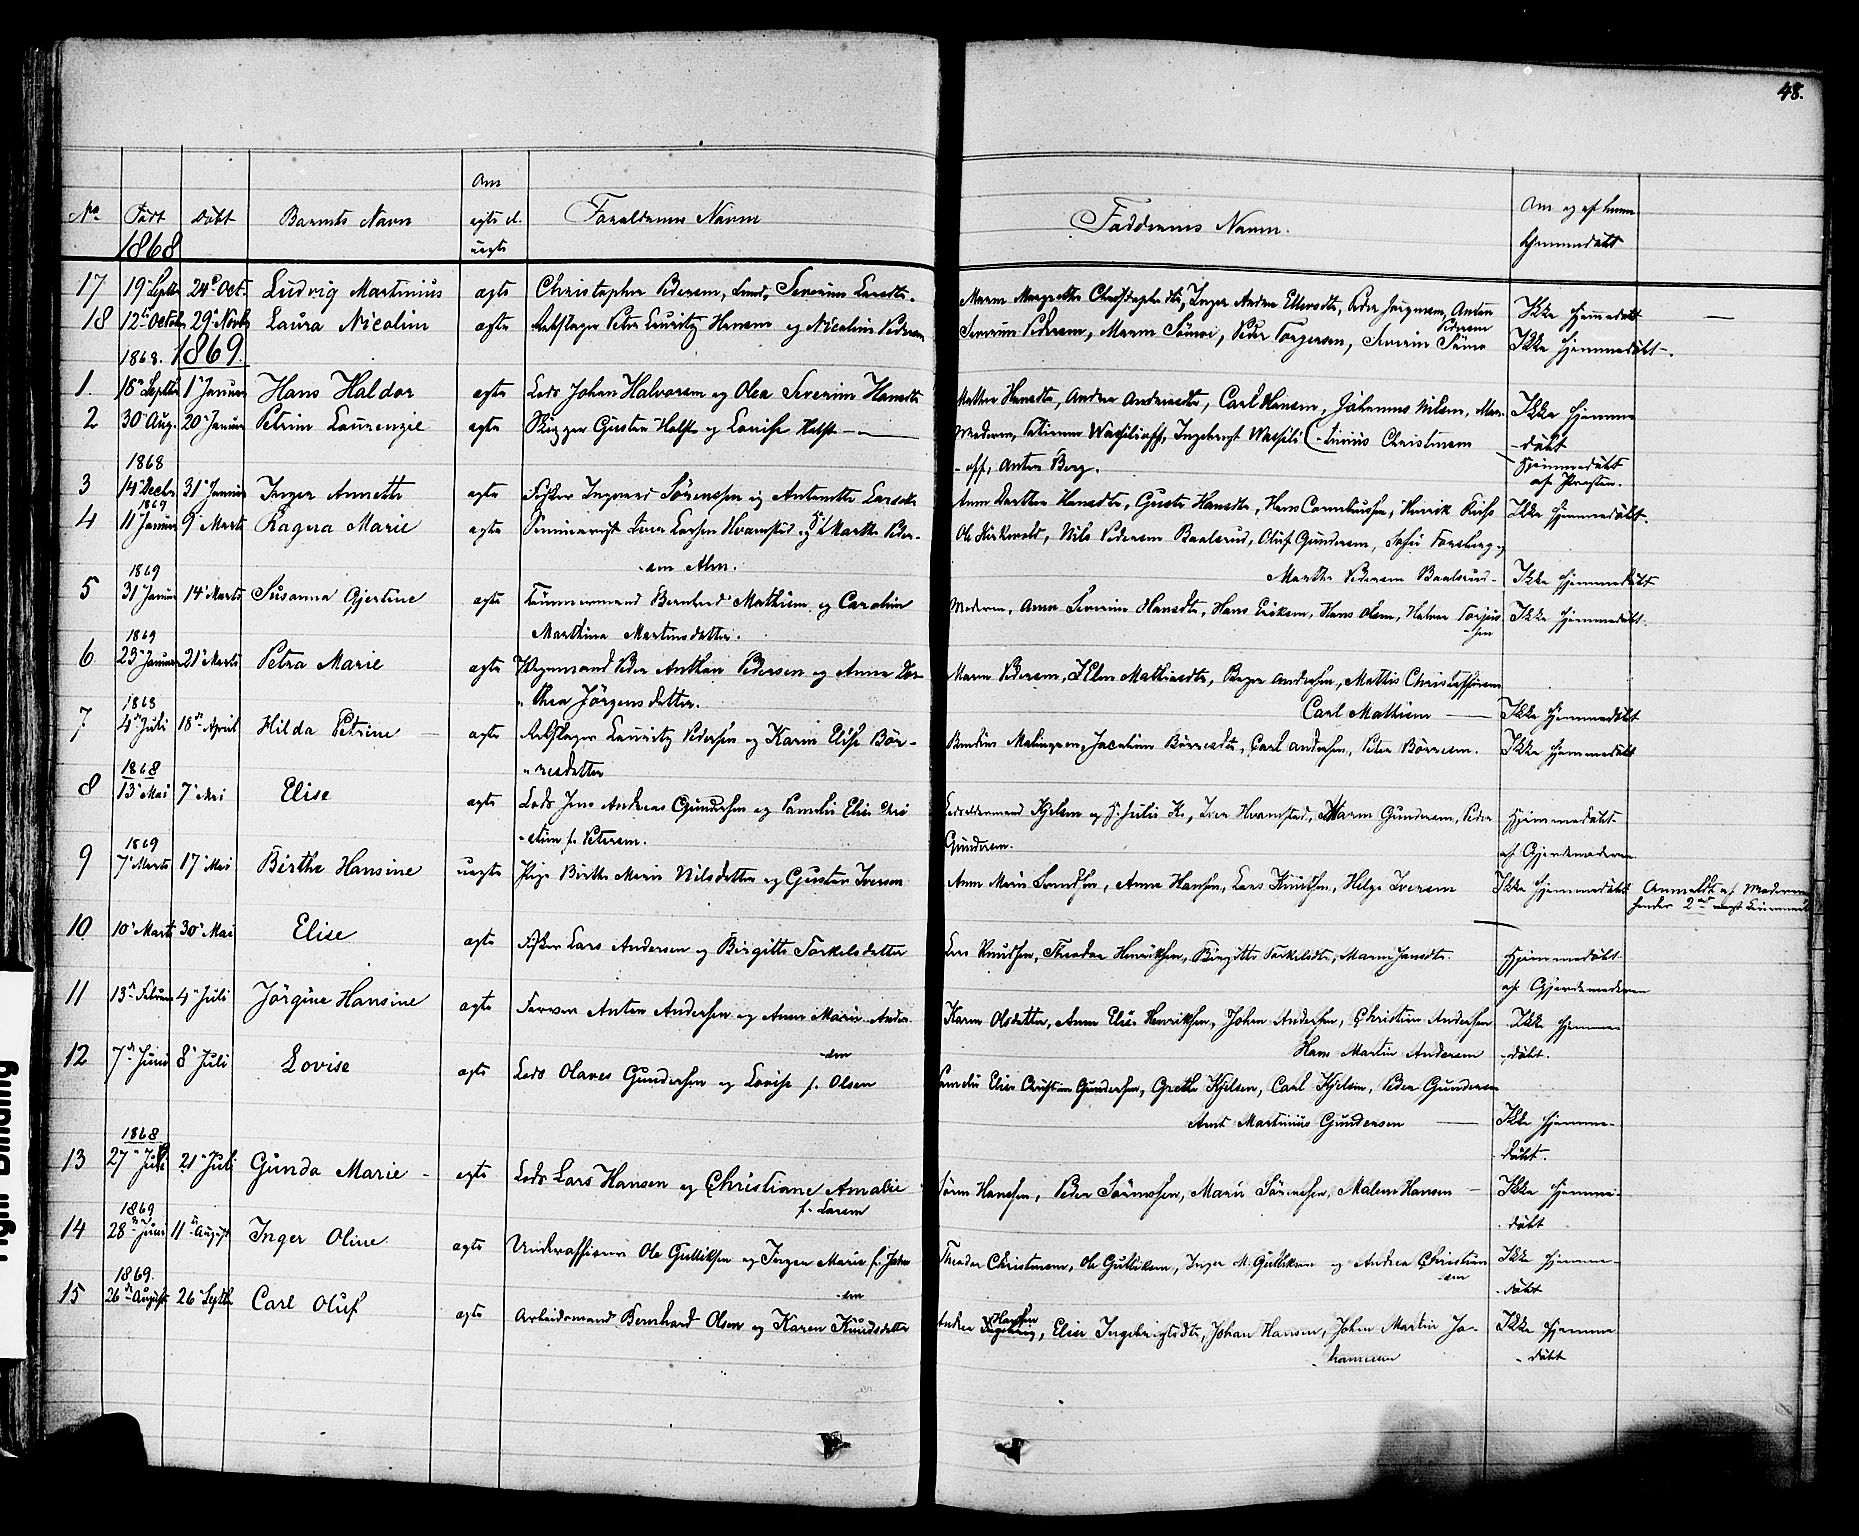 48.
No Født Døbt Barnets Navn Om ægte el. uægte Forældrenes Navne Faddernes Navne. Om og af hvem hjemmedøbt
1868
17 19 Septbr 24 Oct. Ludvig Martinius ægte Christopher Pedersen, Lund, Severine Larsdtr. Maren Margrethe Christophersdtr, Inger Andrea Ellevsdtr, Peder Jørgensen, Anton Pedersen Ikke hjemmedøbt
18 12 October 29 Novbr Laura Nicoline ægte Rebslager Peter Lauritz Hansen og Nicoline Pedersen Severine Pedersen, Maren Simon, Peder Torgersen, Severin Ikke hjemmedøbt.
1868. 1869.
1. 18 Septbr 1 Januar Hans Haldor ægte Lods Johan Halvorsen og Olea Severine Hansdtr Mathea Hansdtr, Andrea Andersdtr, Carl Hansen, Johannes Nilsen, Mar- Ikke hjemme
2 30 Aug. 20 Januar Petrine Laurenzie ægte Skipper Gustav Holst og Louise Holst Moderen, Wassilioff, Ingebregt Wassili (-tinius Christensen -døbt
-off, Anton Berg. Hjemmedøbt af Præsten.
1868
3 14 Decbr 31 Januar Inger Annette ægte Fisker Ingvard Sørenssen og Antonette Larsdtr Anne Dorthea Hansdtr, Gusta Hansdtr, Hans Corneliussen, Henrik Ikke hjemmedøbt.
1869
4 11 Januar 9 Marts Ragna Marie ægte Seminarist Iver Larsen Hvamstad og Marthe Peder- Ole Kirkevold, Nils Pedersen Baalsrud, Oluf Gundersen, Sofie Forsberg og
-sen Alm. Marthe Pedersen Baalsrud- Ikke hjemmedøbt
1869
5 31 Januar 14 Marts Susanna Gjertine ægte Tømmermand Bernhard Mathisen og Caroline Moderen, Anne Severine Hansdtr, Hans Eriksen, Hans Olsen, Halvor Torjus- Ikke hjemmedøbt.
Marthina Martinsdatter. -sen
1869
6 23 Januar 21 Marts Petra Marie ægte Vognmand Peder Anthon Pedersen og Anne Dor- Maren Pedersen, Elen Mathisdtr, Andersen, Mathis Christophersen
"thea Jørgensdatter. Carl Mathisen Ikke hjemmedøbt
1868
7 4 Juli 18 April Hilda Petrine ægte Rebslager Lauritz Pedersen og Karen Elise Bør- Jacobine Børresdtr, Carl Andersen, Peter Børresen. Ikke hjemmedøbt
"resdatter
1868
8 13 Mai 7 Mai Elise ægte Lods Jens Andreas Gundersen og Pamelia Elise Chri Lodsoldermand Kjelsen og Fr. Julie K., Iver Hvamstad, Maren Gundersen, Peder Hjemmedøbt
-stine f. Petersen. Gundersen. af Gjordemoderen
1869
9 7 Marts 17 Mai Birthe Hansine uægte Pige Birthe Marie Nilsdatter og Gustav Iversen Anne Marie Svendsen, Anne Hansen, Lars Knudsen, Helge Iversen Ikke hjemmedøbt Anmeldt af Moderen
hendes 2det uægt
10 10 Marts 30 Mai Elise ægte Fisker Lars Andersen og Birgitte Torkelsdatter Lars Knudsen, Theodor Henriksen, Birgitte Torkelsdtr, Maren Jensdtr. Hjemmedøbt
af Gjordemoderen
11 13 Februar 4 Juli Jørgine Hansine ægte Farver Anton Andersen og Anne Marie Ander- Karen Olsdatter, Anne Elise Henriksen, Johan Andersen, Christian Andersen Ikke hjemme-
-sen Hans Martin Andersen -døbt.
12 7 Juni 8 Juli Lovise ægte Lods Olaves Gundersen og Lovise f. Olsen Pamelia Elise Christine Gundersen, Grethe Kjelsen, Carl Kjelsen, Peder Gundersen
Arnt Martinius Gundersen Ikke hjemme-
døbt.
1868
13 27 Juli 21 Juli Gunda Marie ægte Lods Lars Hansen og Christiane Amalie Søren Hanssen, Peder Sørensen, Marie Sørensen, Malene Hansen Ikke hjemme-
f. Larsen døbt
1869
14 28 Juni 11 August Inger Oline ægte Underofficer Ole Gulliksen og Inger Marie f. Johan Theodor Christensen, Ole Gulliksen, Inger M. Gulliksen og Andrea Christian Ikke hjemme-
-sen sen døbt
1869.
15 26 August 26 Septbr Carl Oluf ægte Arbeidsmand Bernhard Olsen og Karen Knudsdatter Andrea Hansen, Elise Ingebrigtsdtr, Johan Hansen, Johan Martin Jo- Ikke hjemme
hannesen -døbt